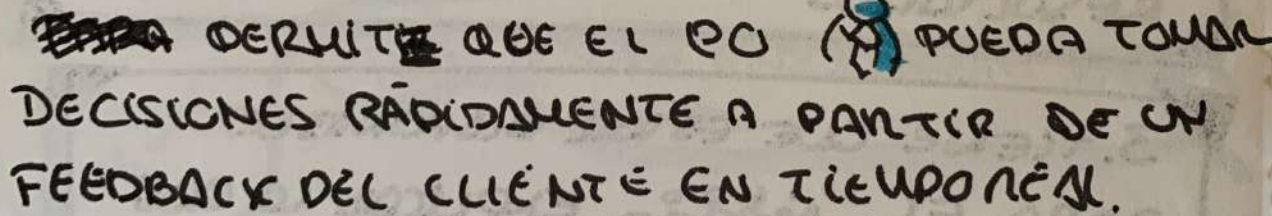 PERMITE QUE EL PO () PUEDA TOMAR
DECISIONES RÁPIDAMENTE A PARTIR DE UN
FEEDBACK DEL CLIENTE EN TIEMPO REAL.